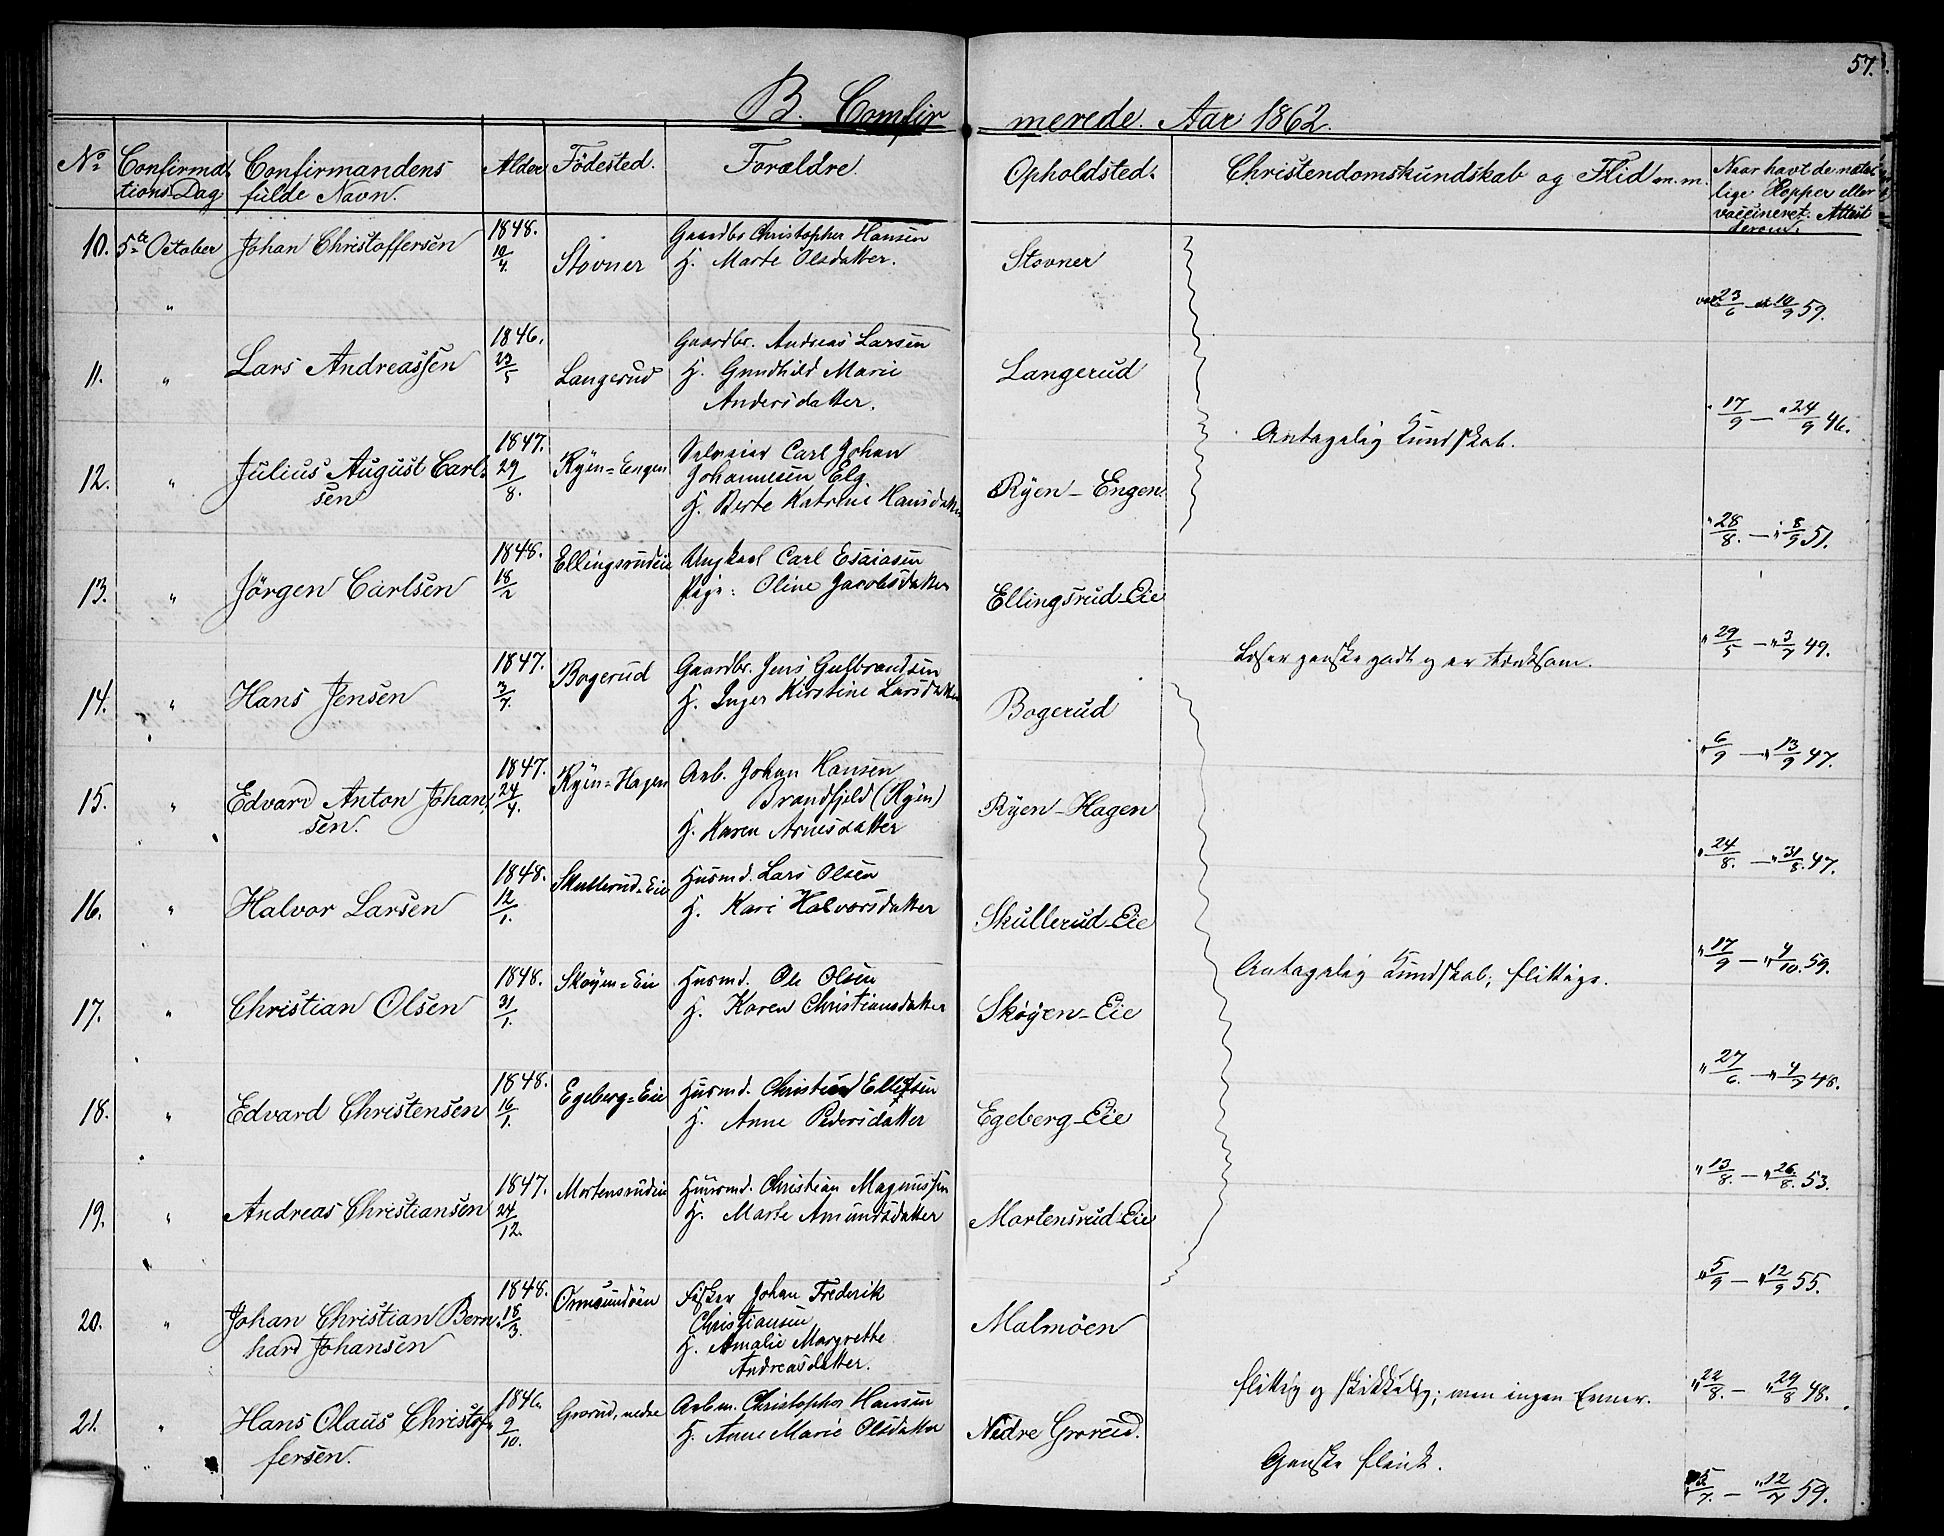 57.
B. Comfirmerede. Aar 1862.
No Confirmations Dag. Confirmandens fulde Navn. Alder Födested. Forældre. Opholdsted. Christendomskundskab og Flid m.m. Naar havt de naturlige Kopper eller vaccineret. Attest derom.
10. 5te October Johan Christoffersen 1848. 10/4. Stovner Gaardbr Christopher Hansen Stovner
H. Marte Olsdatter.
" vac. 23/6 at. 10/9 59.
11. " Lars Andreassen 1846. 23/5 Langerud Gaardbr. Andreas Larsen Langerud
H. Gundhild Marie
Andersdatter.
" 17/9 — " 24/9 46.
Antagelig Kundskab.
12. " Julius August Carlsen 1847. 29/8. Ryen=Engen Selveier Carl Johan Ryen-Engen
Johannesen Elg
H. Berte Katrine Hansdatter
" 28/8. — " 8/9 51.
13. " Jörgen Carlsen 1848. 18/2 Ellingsrudeie Ungkarl Carl Esaiasen Ellingsrud-Eie
Pige: Oline Jacobsdatter
" 29/5 — " 3/7 49.
Læser ganske godt og er tænksom.
14. " Hans Jensen 1847. 3/7. Bogerud Gaardbr. Jens Gulbrandsen Bogerud
H. Inger Kirstine Larsdatter
" 6/9 — " 13/9 47.
15. " Edvard Anton Johansen. 1847. 24/4. Ryen=Hagen Arb. Johan Hansen Ryen-Hagen
Brandfjeld (Ryen)
H. Karen Arnesdatter
" 24/8. — " 31/8. 47.
16. " Halvor Larsen 1848. 12/1. Skullerud-Eie Husmd. Lars Olsen Skullerud-Eie
H. Kari Halvorsdatter
" 17/9 — " 4/10. 59.
Antagelig Kundskab, flittige.
17. " Christian Olsen 1848. 31/1. Skøyen=Eie Husmd. Ole Olsen Skøyen-Eie
H. Karen Christiansdatter
" 27/6. — " 4/7 48.
18. " Edvard Christensen 1848. 16/1. Egeberg=Eie Husmd. Christian Ellefsen Egeberg-Eie
H. Anne Pedersdatter
" 13/8. — " 26/8. 53.
19. " Andreas Christiansen 1847. 24/12. Mortensrudeie Husmd. Christian Magnussen Mortensrud-Eie
H. Marte Amundsdatter
" 5/9 — " 12/9 55.
20. " Johan Christian Bernhard Johansen 1848. 18/3. Ormsundöen Fisker Johan Frederik Malmöen
Christiansen
H. Amalie Margrethe
Andreasdatter.
flittig og skikkelig; men ingen Evner. " 22/8. — " 29/8 48.
21. " Hans Olaus Christoffersen. 1846. 9/10. Grorud, nedre Arbm. Christopher Hansen Nedre Grorud.
H. Anne Marie Olsdatter
Ganske flink.
" 5/7. — " 12/7 59.